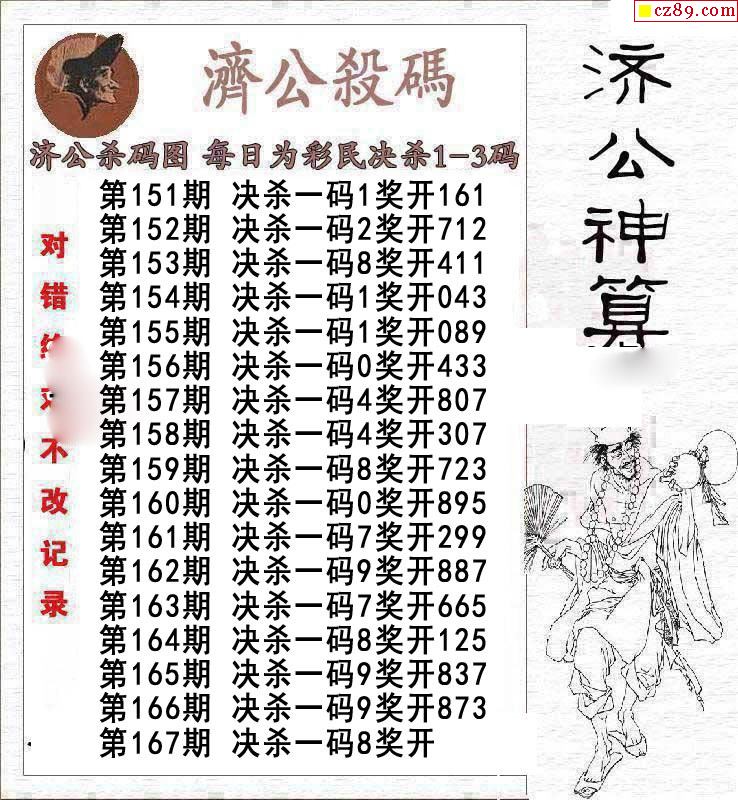 cz89.com
濟公殺碼
济公杀码图 每日为彩民决杀1-3码
第151期 决杀一码1奖开161
第152期 决杀一码2奖开712
第153期 决杀一码8奖开411
第154期 决杀一码1奖开043
第155期 决杀一码1奖开089
第156期 决杀一码0奖开433
第157期 决杀一码4奖开807
第158期 决杀一码4奖开307
第159期 决杀一码8奖开723
第160期 决杀一码0奖开895
第161期 决杀一码7奖开299
第162期 决杀一码9奖开887
第163期 决杀一码7奖开665
第164期 决杀一码8奖开125
第165期 决杀一码9奖开837
第166期 决杀一码9奖开873
第167期 决杀一码8奖开
对错不改记录
济公神算